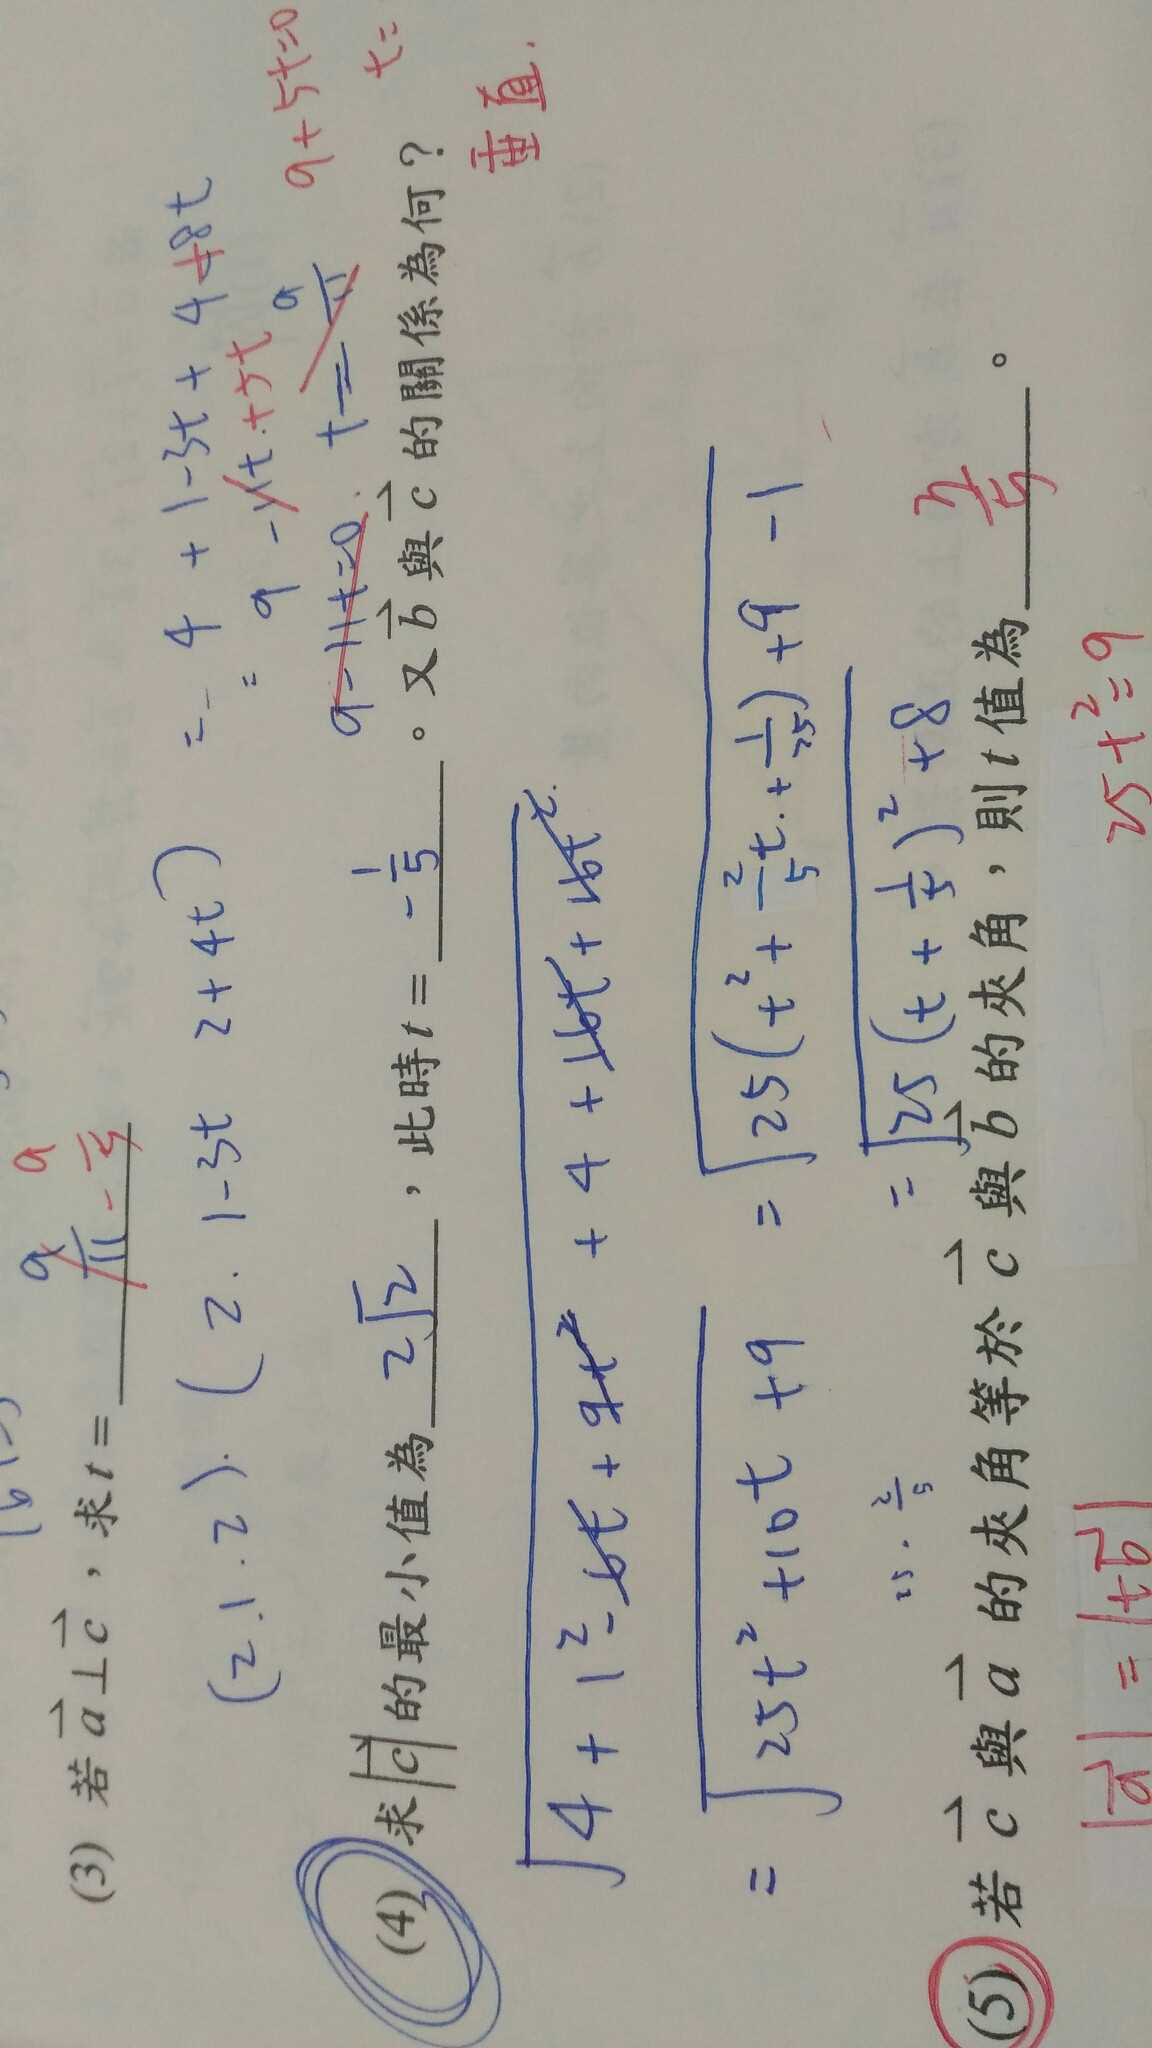 (3) 若 a⊥c，求 t = 9/11 -9/5
(2.1.2).(2.1-3t 2+4t) = 4 + 1-3t + 4+8t
= 9 -11t.+5t
9-11t=0. t= 9/11
9+5t=0
t=
(4) 求|c|的最小值為 2√2 ，此時 t = -1/5 。又 b 與 c 的關係為何？
垂直.
√4 + 1²-6t + 9t² + 4 + 16t + 16t².
= √25t² +10t +9 = √25(t² + 2/5 t. + 1/25) +9 -1
25. 2/5
= √25(t + 1/5)² +8
(5) 若 c 與 a 的夾角等於 c 與 b 的夾角，則 t 值為 3/5 。
|a| = |tb| 25t²=9